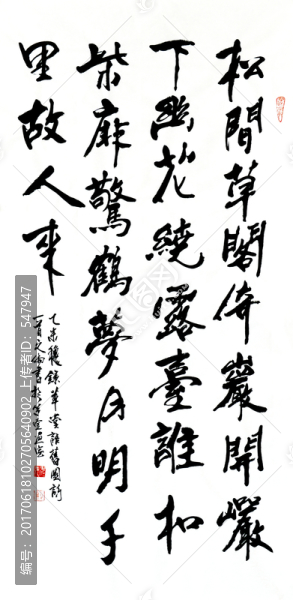 松間草閣倚巖開巖
下幽花繞露臺誰扣
柴麻驚鶴夢月明千
里故人來
乙未 錄草堂雅舊圖詩
編号：20170618102705640902 上传者ID：547947